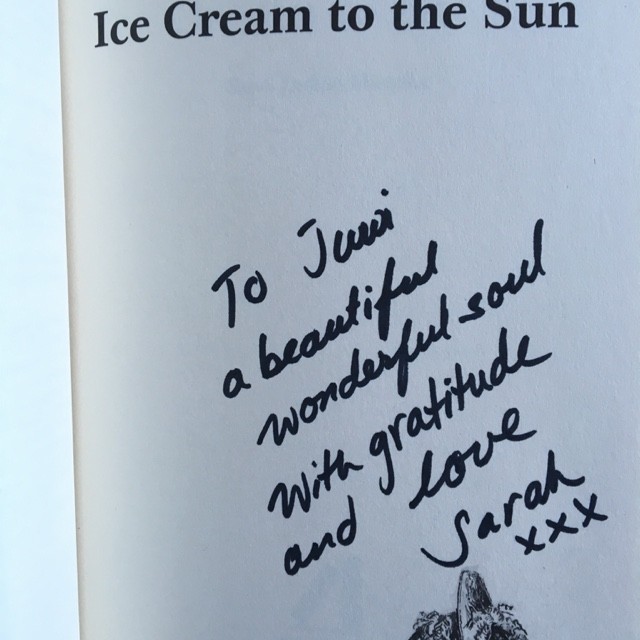 Ice Cream to the Sun
To
a beautiful
wonderful soul
With gratitude
and love
Sarah
xxx